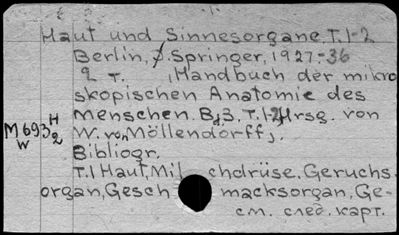 Haut und Sinnesorgane, T. 1-2
Berlin, J. Springer, 1927-36
2 т. (Handbuch der mikro
skopischen Anatomie des
Menschen. Bd 3, T. 1-2, Hrsg. von
M693 H/2 W. von Möllendorff).
W
Bibliogr.
T. 1 Haut, Mil chdrüse, Geruchs
organ, Gesch macksorgan, Ge-
см. след. карт.